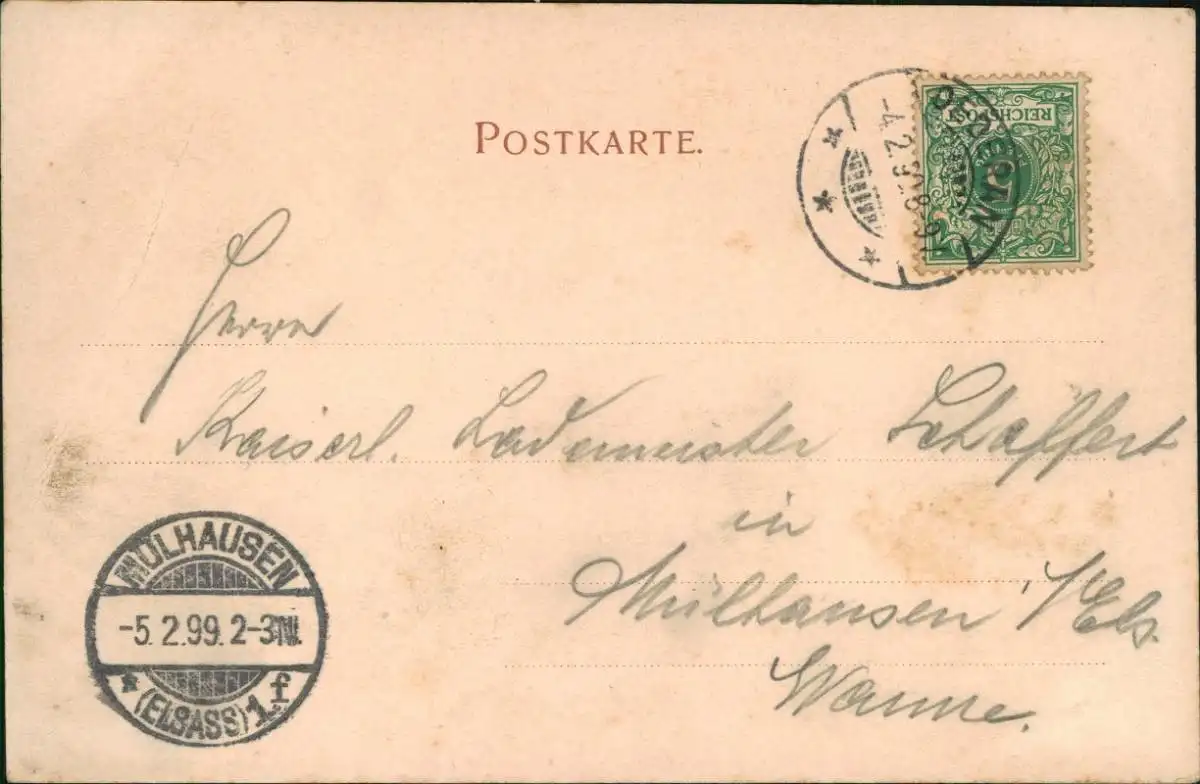 POSTKARTE.
REICHSPOST
5
-4.2.9 8-9
Herrn
Kaiserl. Lademeister Schaffert
in
Mülhausen i/Els.
Wanne.
MÜLHAUSEN
-5.2.99.2-3N.
* (ELSASS) 1.f